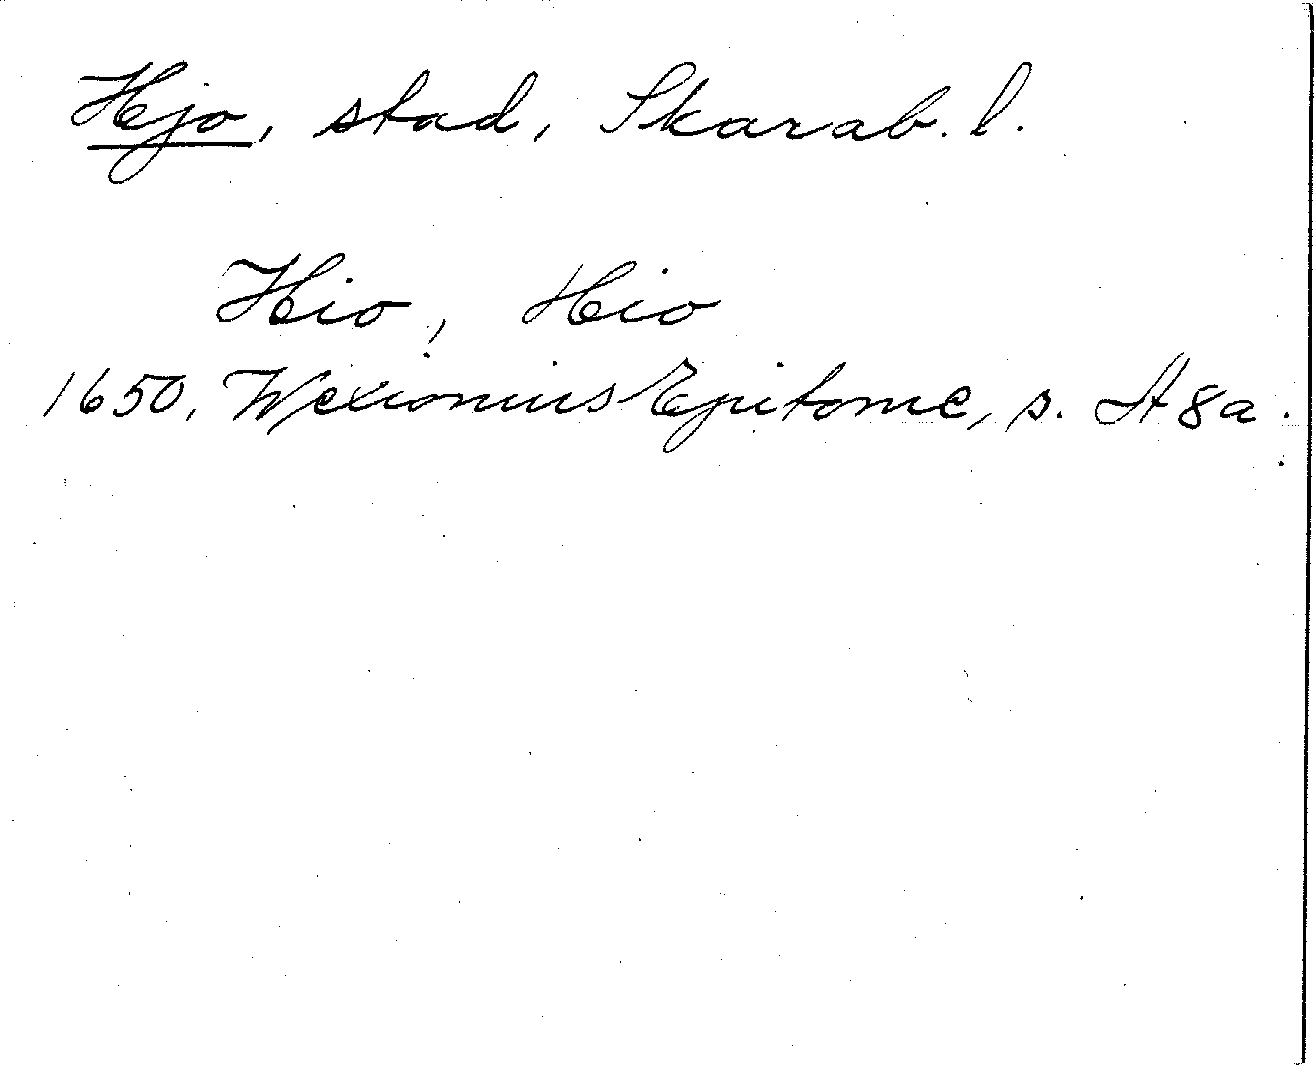 Hjo, stad, Skarab. l.
Hio, Hio
1650, Wexionius Epitome, s. A 8 a.